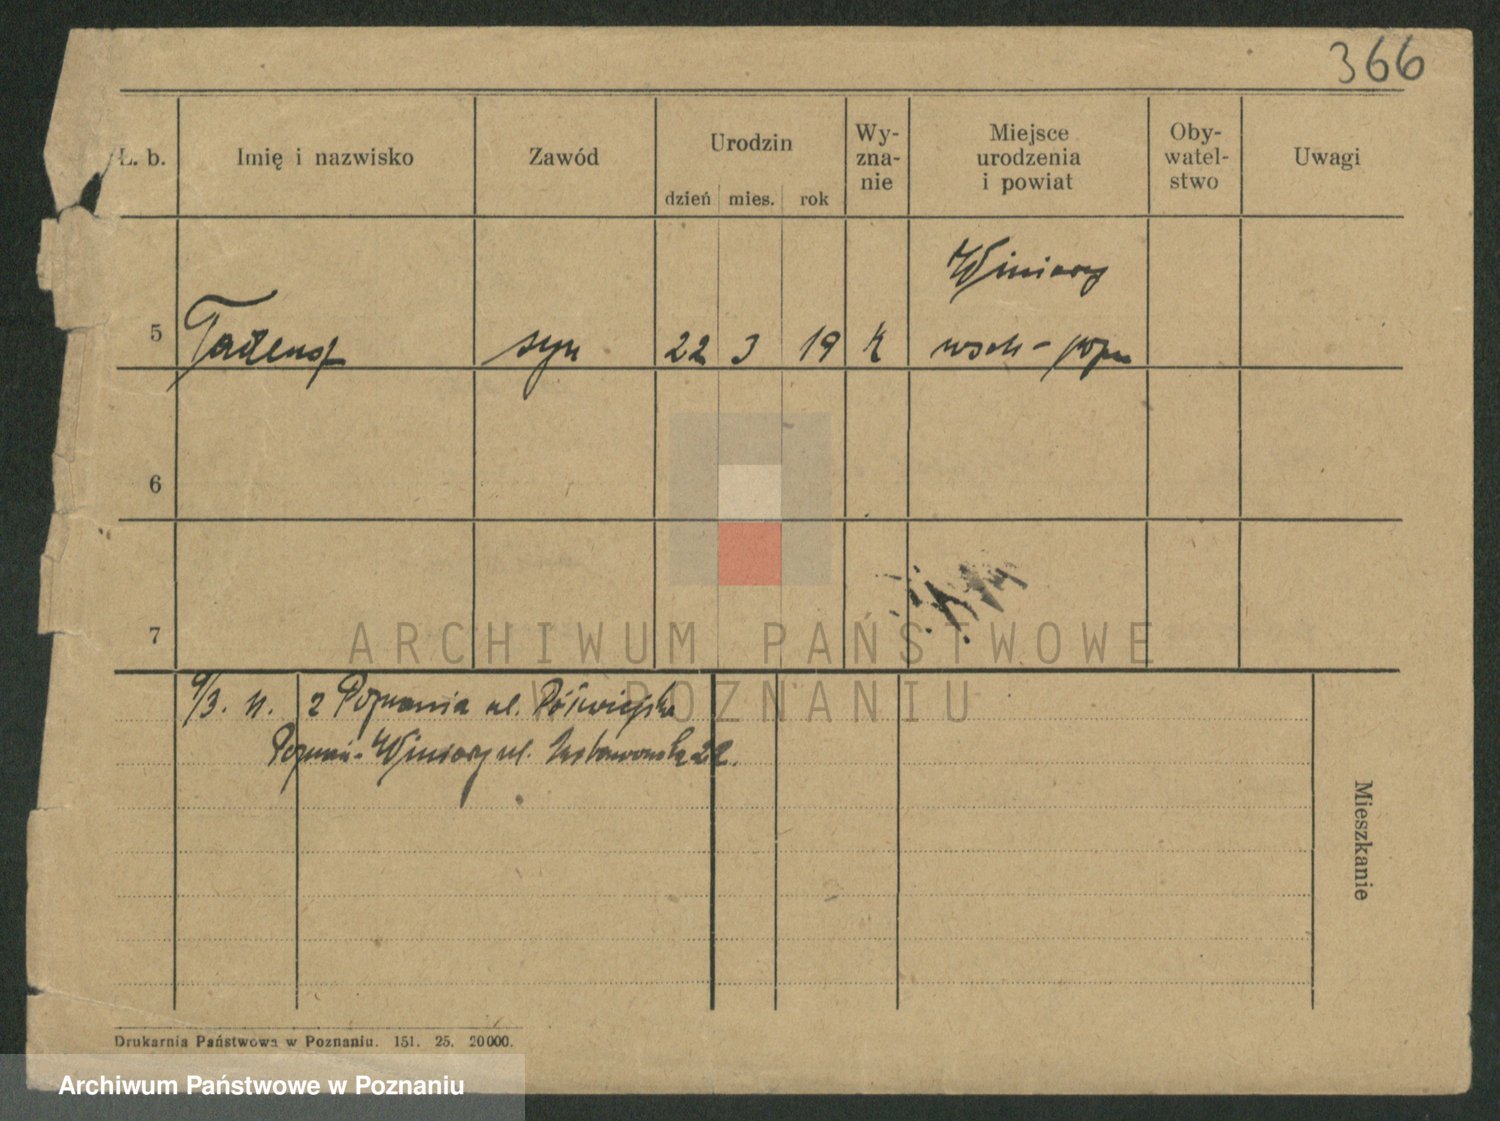 366
Ł. b. Imię i nazwisko Zawód Urodzin dzień mies. rok Wy-zna-nie Miejsce urodzenia i powiat Oby-watel-stwo Uwagi
Winiary
5 Tadeusz syn 22 3 19 k wsch-pozn
6
7
9/3. 11. z Poznania ul. Półwiejska
Poznań-Winiary ul. 22.
Mieszkanie
ARCHIWUM PAŃSTWOWE
W POZNANIU
Drukarnia Państwowa w Poznaniu. 151. 25. 20000.
Archiwum Państwowe w Poznaniu